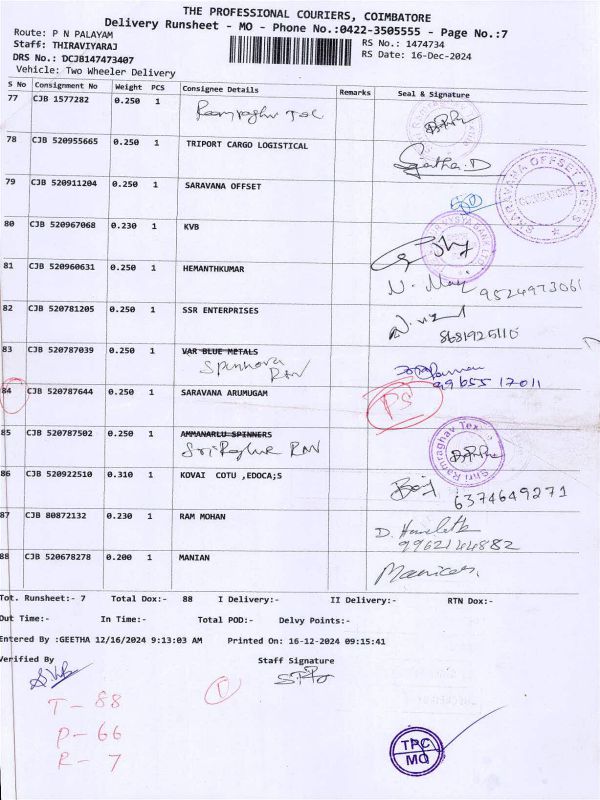 THE PROFESSIONAL COURIERS, COIMBATORE
Delivery Runsheet - MO - Phone No.:0422-3505555 - Page No.:7
Route: P N PALAYAM
RS No.: 1474734
Staff: THIRAVIYARAJ
RS Date: 16-Dec-2024
DRS No.: DCJB147473407
Vehicle: Two Wheeler Delivery
S No Consignment No Weight PCS Consignee Details Remarks Seal & Signature
77 CJB 1577282 0.250 1
78 CJB 520955665 0.250 1 TRIPORT CARGO LOGISTICAL
Sgatha.D
79 CJB 520911204 0.250 1 SARAVANA OFFSET
SARAVANA OFFSET PRESS
COIMBATORE
80 CJB 520967068 0.230 1 KVB
81 CJB 520960631 0.250 1 HEMANTHKUMAR
9524973061
82 CJB 520781205 0.250 1 SSR ENTERPRISES
8681925110
83 CJB 520787039 0.250 1 VAR BLUE METALS
99655 17011
84 CJB 520787644 0.250 1 SARAVANA ARUMUGAM
PS
85 CJB 520787502 0.250 1 AMMANARLU SPINNERS
Shri Ramraghav Tex
86 CJB 520922510 0.310 1 KOVAI COTU ,EDOCA;S
6374649271
87 CJB 80872132 0.230 1 RAM MOHAN
9962144882
88 CJB 520678278 0.200 1 MANIAN
Manian
Tot. Runsheet:- 7 Total Dox:- 88 I Delivery:- II Delivery:- RTN Dox:-
Out Time:- In Time:- Total POD:- Delvy Points:-
Entered By :GEETHA 12/16/2024 9:13:03 AM Printed On: 16-12-2024 09:15:41
Verified By Staff Signature
T - 88
P - 66
R - 7
TPC
MO